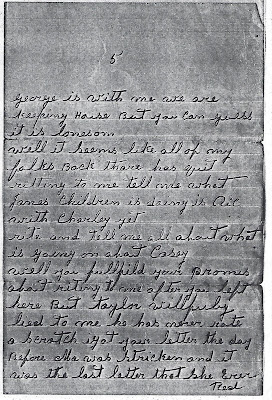 5
george is with me we are
keeping House But you Can guess
it is lonesom
well it seems like all of my
folks Back thare has quit
ritting to me tell me what
Janes Children is doing is Air
with Charley yet
rite and tell me all about what
is going on about Casey
well you fulfild your promis
about riting to me after you left
here But Taylor willfuly
lied to me he has never rote
a scratch I got your letter the day
Before she was stricken and it
was the last letter that she Ever
Read